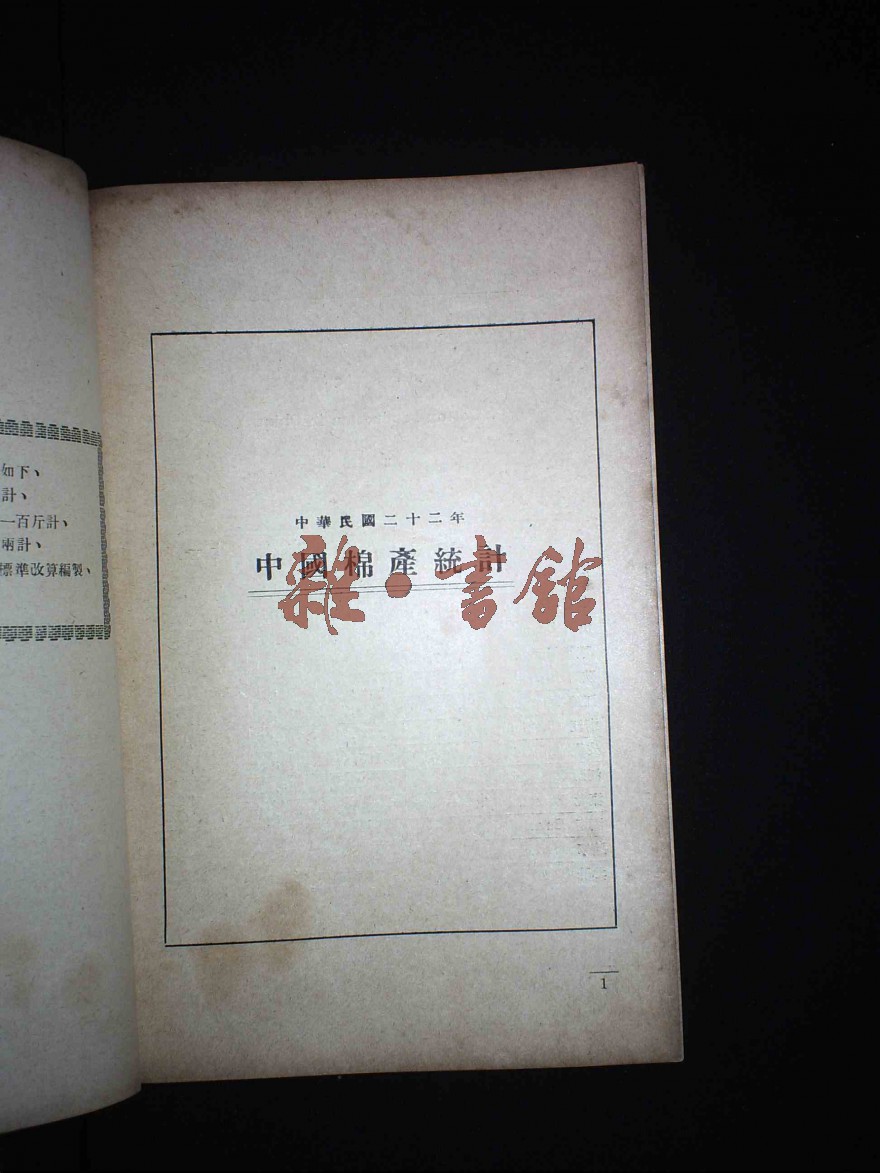 如下、
計、
一百斤計、
兩計、
標準改算編製、
中華民國二十二年
中國棉產統計
雜·書館
1